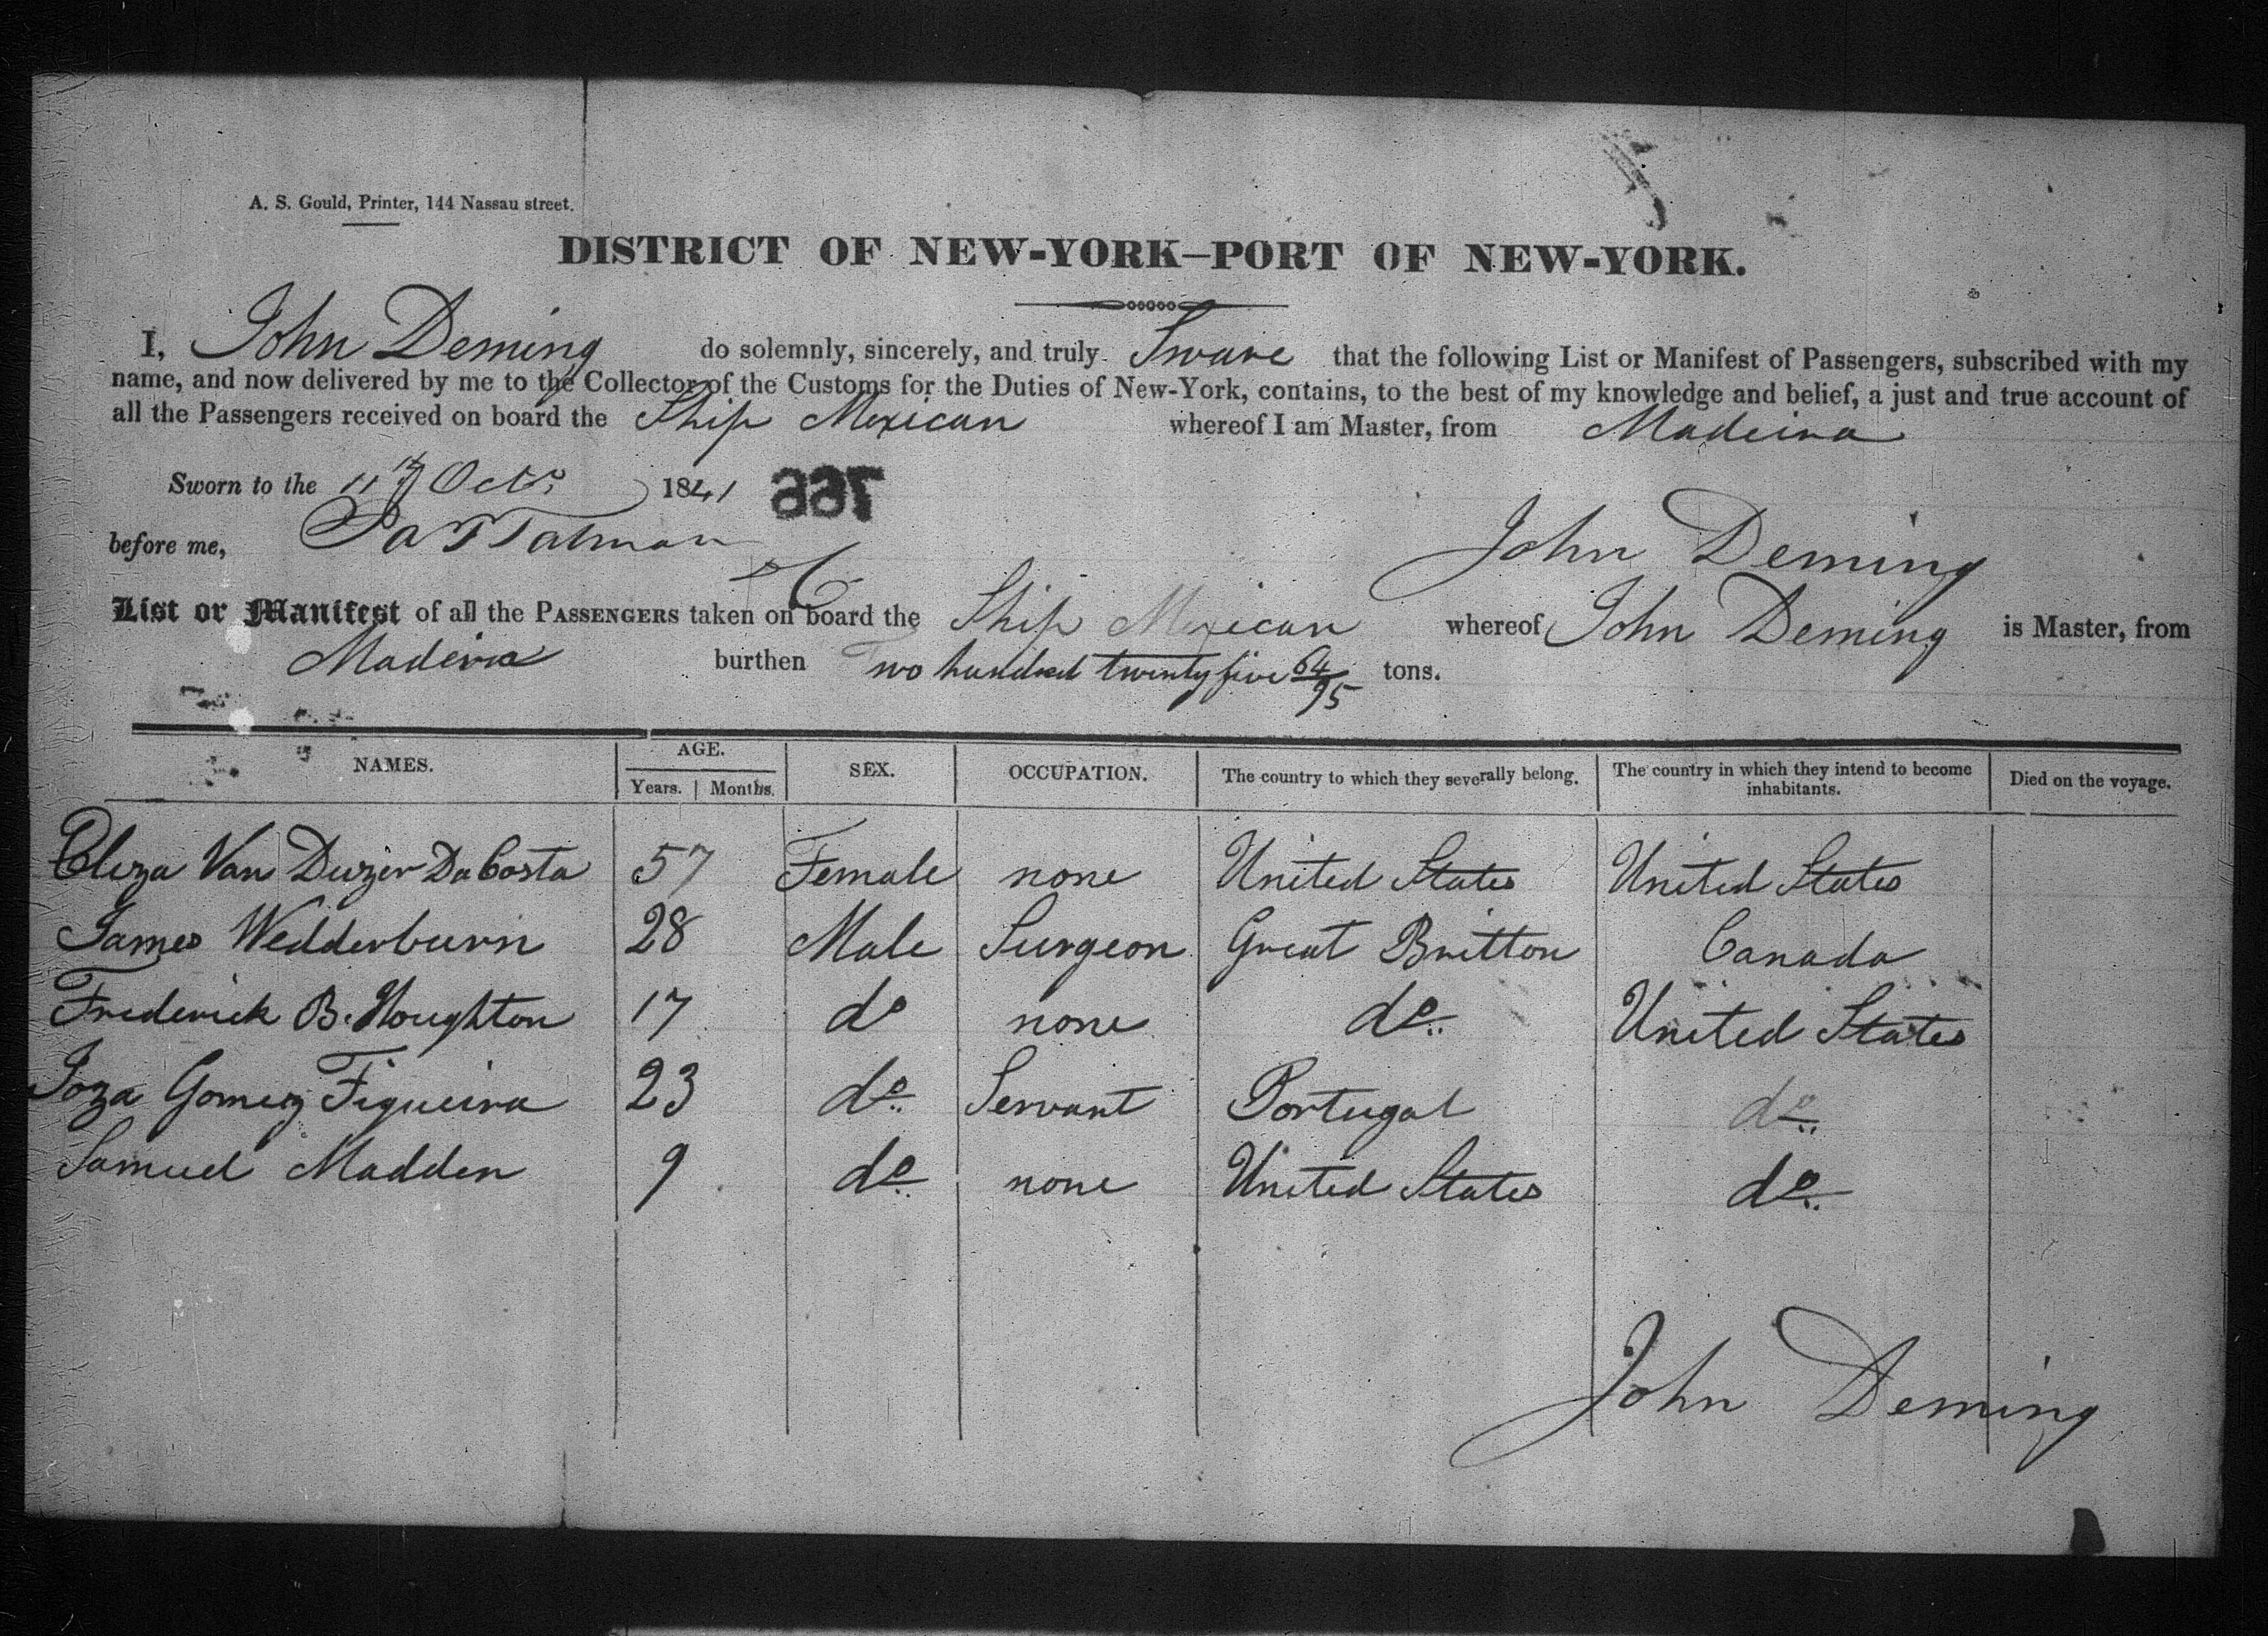 A. S. Gould, Printer, 144 Nassau street.
DISTRICT OF NEW-YORK—PORT OF NEW-YORK.
I, John Deming do solemnly, sincerely, and truly Sware that the following List or Manifest of Passengers, subscribed with my
name, and now delivered by me to the Collector of the Customs for the Duties of New-York, contains, to the best of my knowledge and belief, a just and true account of
all the Passengers received on board the Ship Mexican whereof I am Master, from Madeira
Sworn to the 11th Octr 1841
before me, Talman
John Deming
List or Manifest of all the PASSENGERS taken on board the Ship Mexican whereof John Deming is Master, from
Madeira burthen Two hundred twenty five 64/95 tons.
NAMES. AGE. Years. Months. SEX. OCCUPATION. The country to which they severally belong. The country in which they intend to become inhabitants. Died on the voyage.
Eliza Van Duzer DaCosta 57 Female none United States United States
James Wedderburn 28 Male Surgeon Great Britton Canada
Frederick B. Houghton 17 do none do United States
Joza Gomez Figueira 23 do Servant Portugal do
Samuel Madden 9 do none United States do
John Deming